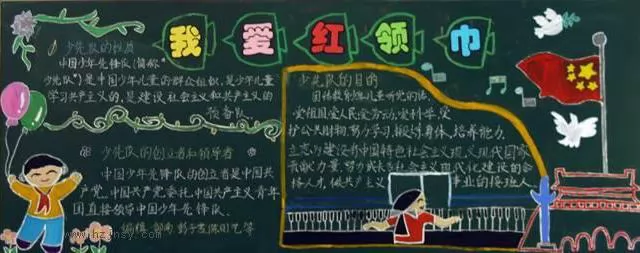 我爱红领巾
少先队的性质
中国少年先锋队(简称"
少先队")是中国少年儿童的群众组织,是少年儿童
学习共产主义的,是建设社会主义和共产主义的
预备队
少先队的创立者和领导者
中国少年先锋队的创立者是中国共
产党。中国共产党委托中国共产主义青年
团直接领导中国少年先锋队。
少先队的目的
团结教育少年儿童听党的话,
爱祖国爱人民爱劳动,爱科学,爱
护公共财物,努力学习,锻炼身体,培养能力,
立志为建设有中国特色社会主义现代国家
贡献力量,努力成长为社会主义现代化建设的合
格人才,做共产主义 事业的接班人